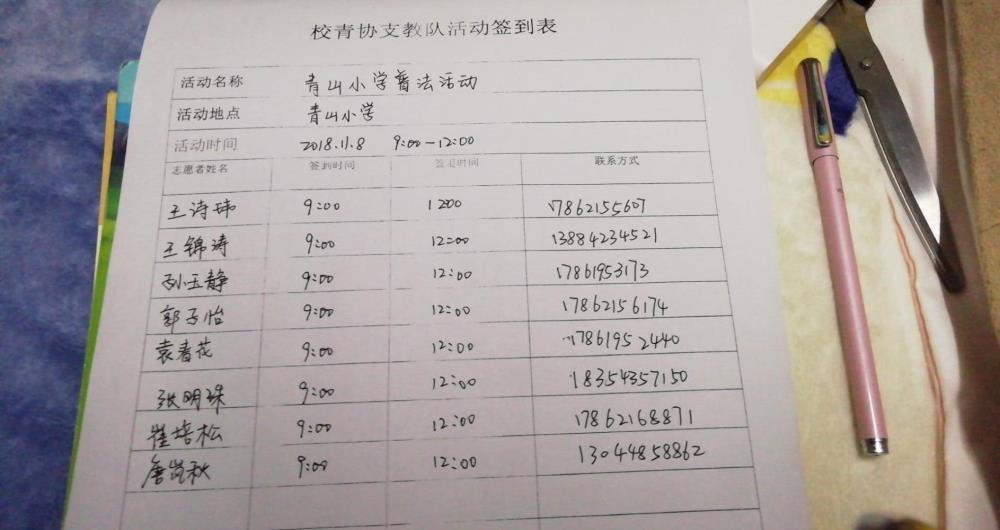 校青协支教队活动签到表
活动名称 青山小学普法活动
活动地点 青山小学
活动时间 2018.11.8 9:00-12:00
志愿者姓名 签到时间 签退时间 联系方式
王诗玮 9:00 12:00 17862155607
王锦涛 9:00 12:00 13884234521
孙玉静 9:00 12:00 17861953173
郭子怡 9:00 12:00 17862156174
袁春花 9:00 12:00 17861952440
张明珠 9:00 12:00 18354357150
崔培松 9:00 12:00 17862168871
唐岚秋 9:00 12:00 13044858862